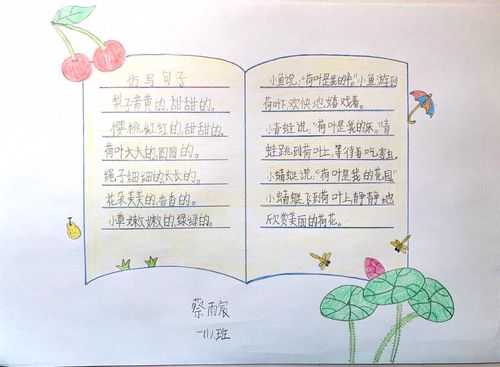 仿写句子
梨子黄黄的,甜甜的。
樱桃红红的,甜甜的。
荷叶大大的,圆圆的。
绳子细细的,长长的。
花朵美美的,香香的。
小草嫩嫩的,绿绿的。
小鱼说:“荷叶是我的伞”小鱼游到
荷叶下,欢快地嬉戏着。
小青蛙说:“荷叶是我的床。”青
蛙跳到荷叶上,等待着吃害虫。
小蜻蜓说:“荷叶是我的花园”
小蜻蜓飞到荷叶上静静地
欣赏美丽的荷花。
蔡雨宸
一11班